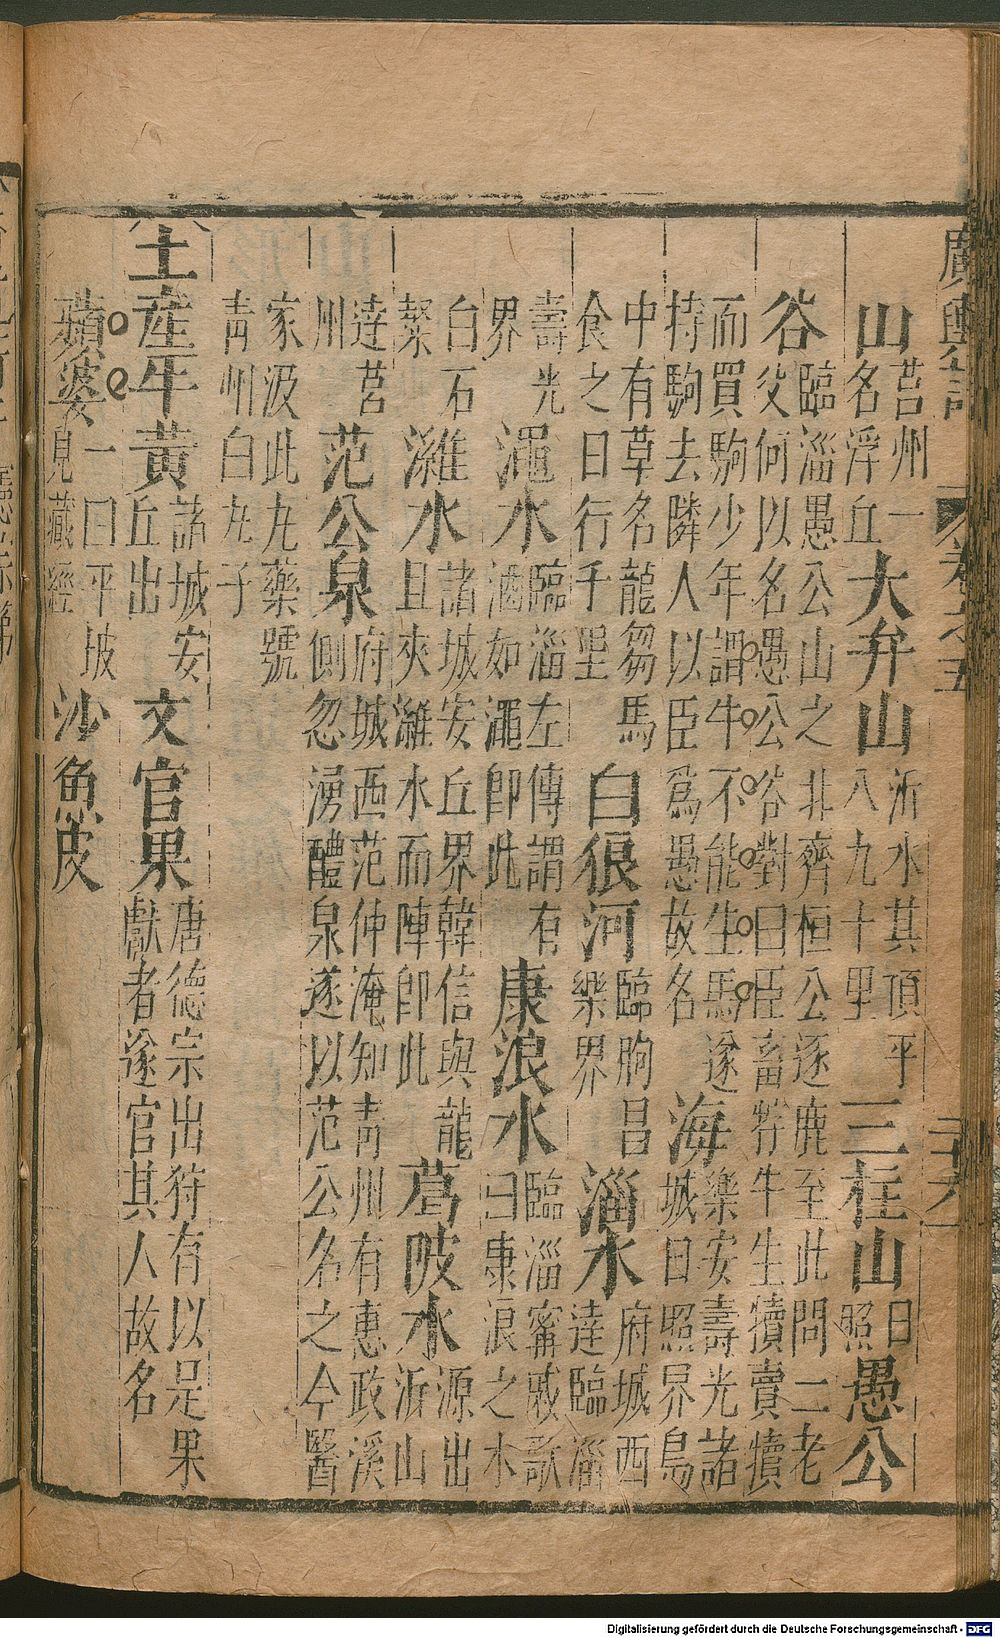 廣輿記 卷之五 二十六
山莒州一名浮丘大弁山沂水其頂平八九十里三柱山日照愚公
谷臨淄愚公山之北齊桓公逐鹿至此問二老父何以名愚公谷對曰臣畜牸牛生犢賣犢
而買駒少年謂牛不能生馬遂持駒去隣人以臣爲愚故名海樂安壽光諸城日照界鳥
中有草名龍芻馬食之日行千里白狼河臨朐昌樂界淄水府城西達臨淄
壽光界澠水臨淄左傳謂有酒如澠即此康浪水臨淄甯戚歌曰康浪之水
白石粲濰水諸城安丘界韓信與龍且夾濰水而陣即此葛陂水源出沂山
達莒州范公泉府城西范仲淹知青州有惠政溪側忽湧醴泉遂以范公名之今醫
家汲此丸藥號青州白丸子
土産牛黃諸城安丘出文官果唐德宗出狩有以是果獻者遂官其人故名
蘋婆一曰平坡見藏經沙魚皮
Digitalisierung gefördert durch die Deutsche Forschungsgemeinschaft - DFG